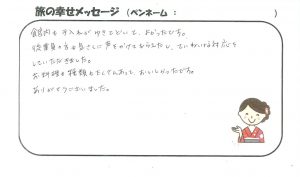 旅の幸せメッセージ（ペンネーム：　　　　）
館内も手入れがゆきとどいて、よかったです。
従業員の方も気さくに声をかけてもらえたし、ていねいな対応を
していただきました。
お料理の種類もたくさんあって、おいしかったです。
ありがとうございました。